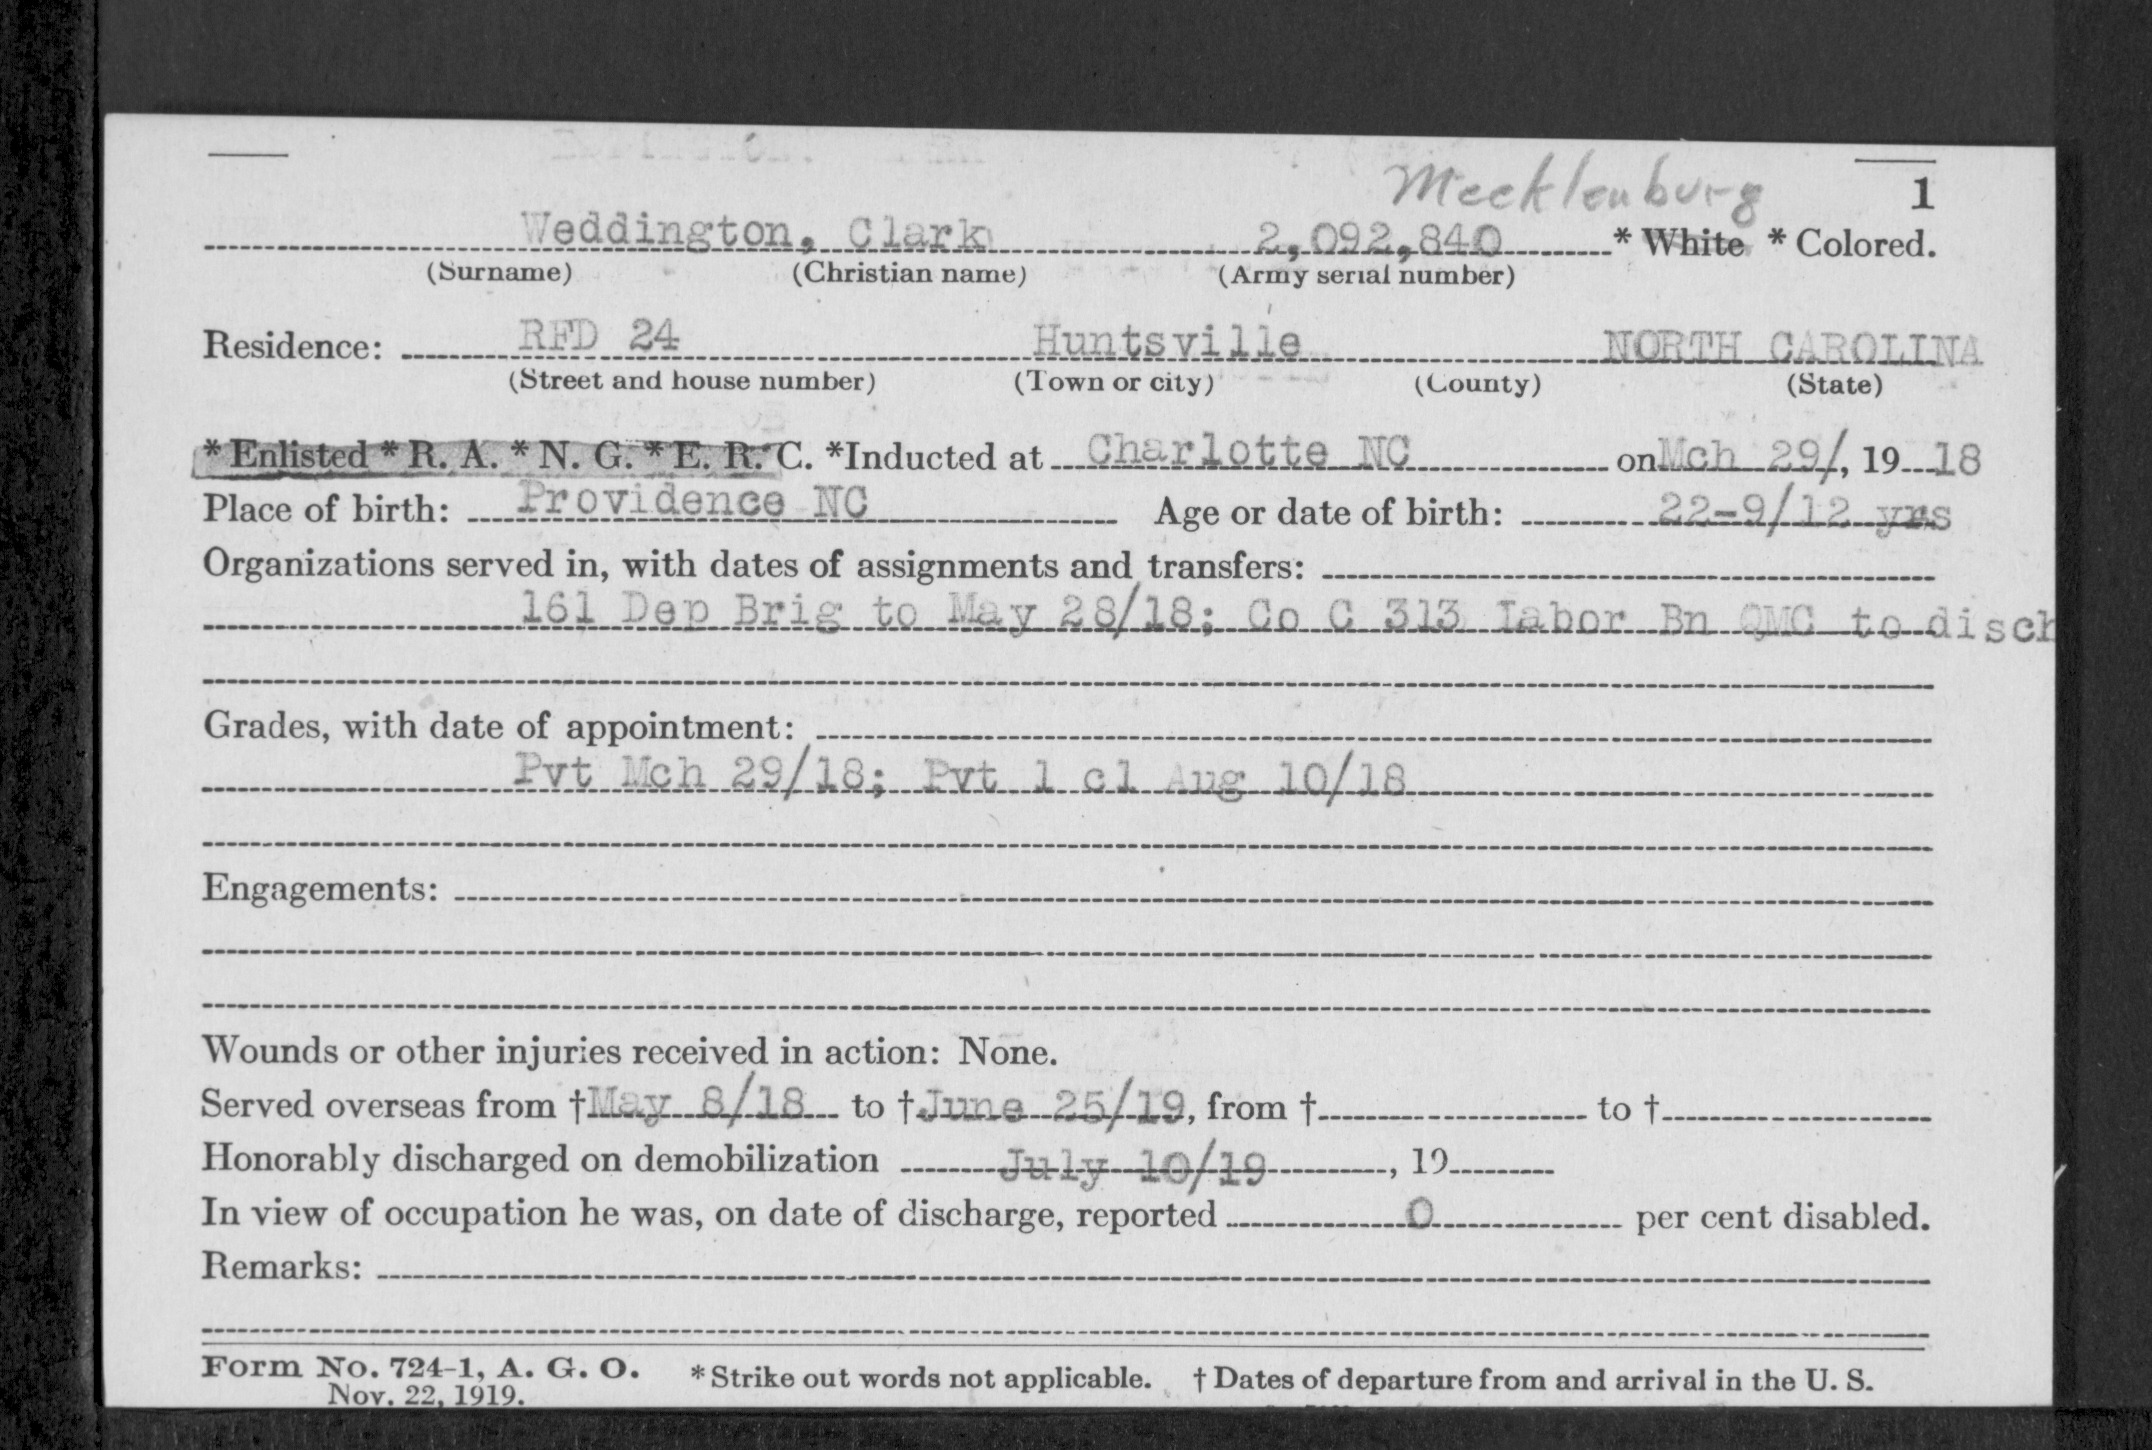 Mecklenburg
1
Weddington, Clark 2,092,840 * White * Colored.
(Surname) (Christian name) (Army serial number)
Residence: RFD 24 Huntsville NORTH CAROLINA
(Street and house number) (Town or city) (County) (State)
*Enlisted *R. A. *N. G. *E. R. C. *Inducted at Charlotte NC on Mch 29/, 19 18
Place of birth: Providence NC Age or date of birth: 22-9/12 yrs
Organizations served in, with dates of assignments and transfers:
161 Dep Brig to May 28/18; Co C 313 Labor Bn QMC to disch
Grades, with date of appointment:
Pvt Mch 29/18; Pvt 1 cl Aug 10/18
Engagements:
Wounds or other injuries received in action: None.
Served overseas from †May 8/18 to †June 25/19, from † to †
Honorably discharged on demobilization July 10/19, 19
In view of occupation he was, on date of discharge, reported 0 per cent disabled.
Remarks:
Form No. 724-1, A. G. O. *Strike out words not applicable. †Dates of departure from and arrival in the U. S.
Nov. 22, 1919.